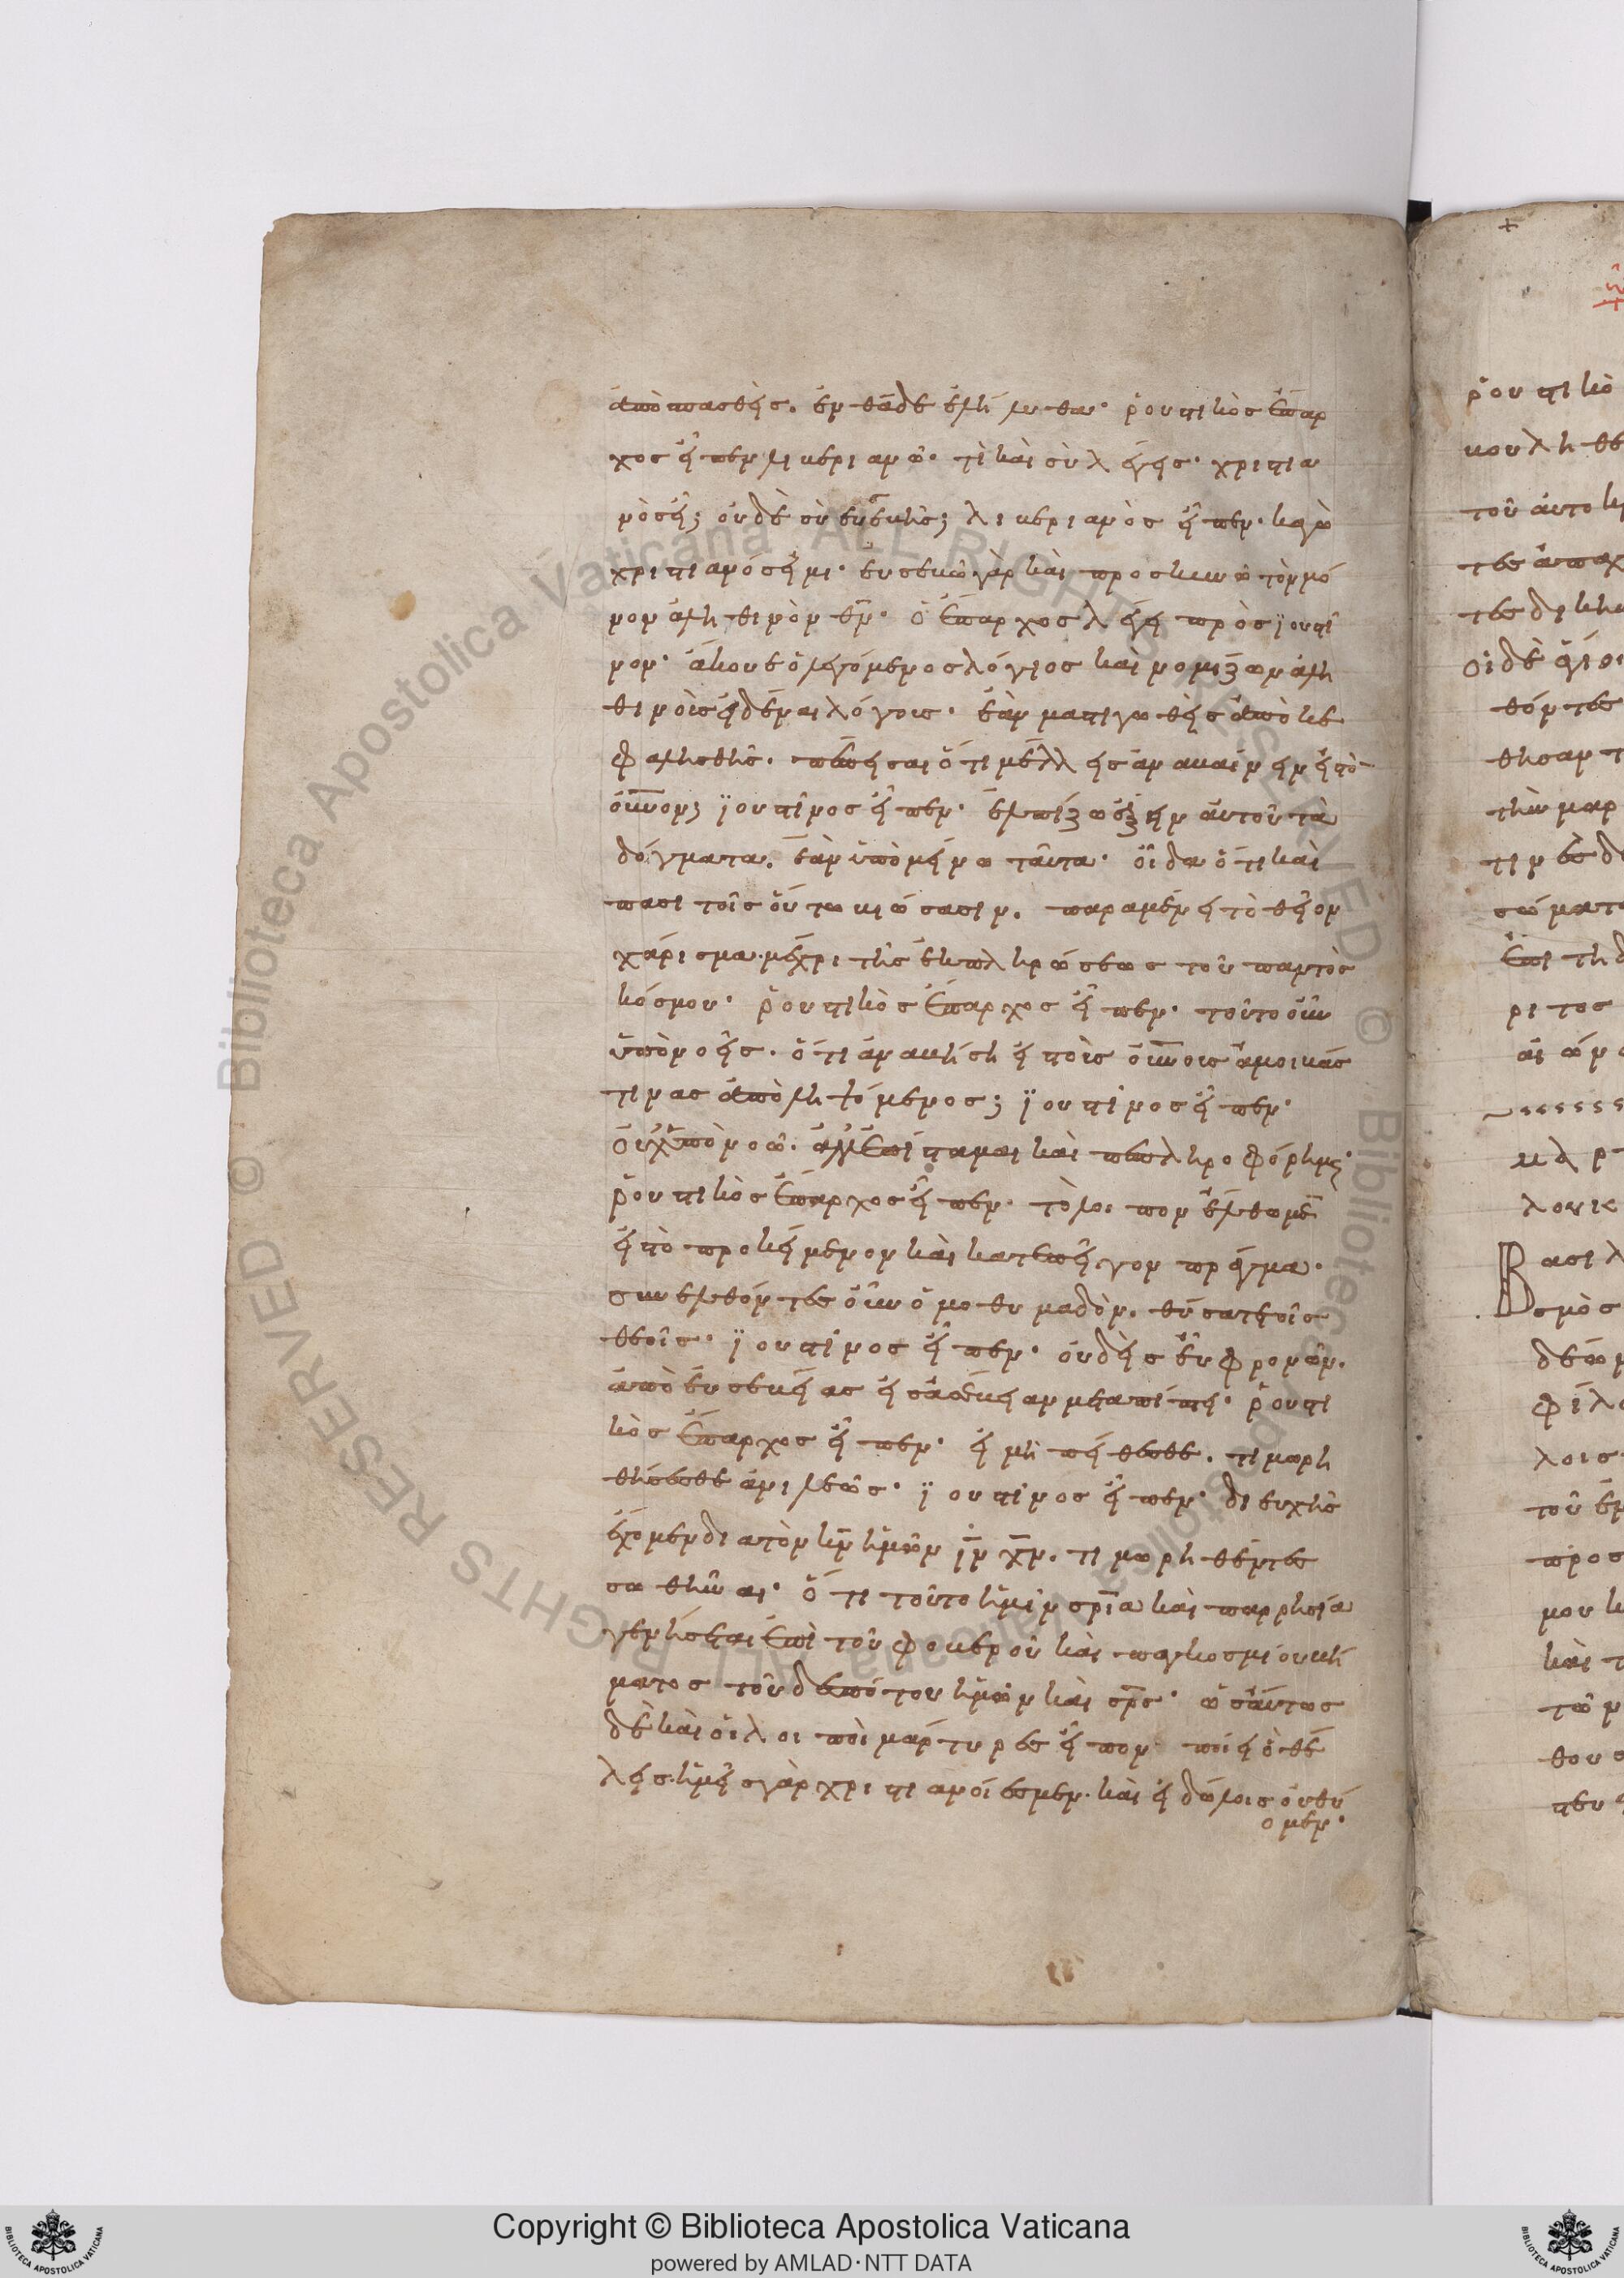 ἀποσπασθεὶς. ἐνθάδε ἐλήλυθα· ῥουστικὸς ἔπαρ
χος εἶπεν λιβεριανῶ· τί καὶ σὺ λέγεις· χριστια
νὸς εἶ; οὐδὲ σὺ εὐσεβεῖς; λιβεριανὸς εἶπεν· καγὼ
χριστιανός εἰμι· εὐσεβῶ γὰρ καὶ προσκυνῶ τὸν μό
νον ἀληθινὸν θν· ὁ ἔπαρχος λέγει πρὸς ϊουστῖ
νον· ἄκουε ὁ λεγόμενος λόγιος καὶ νομίζων ἀλη
θινοῖς εἰδέναι λόγοις· ἐὰν μαστιγωθεὶς ἀποκε
φαλισθῆς. πέπεισαι ὅτι μέλλεις ἀναβαίνειν εἰς τὸν
οὐνον; ϊουστῖνος εἶπεν· ἐλπίζω ἕξειν αὐτοῦ τὰ
δόγματα. ἐὰν ὑπομείνω ταῦτα· οἶδα ὅτι καὶ
πᾶσι τοῖς οὕτω βιώσασιν. παραμένει τὸ θεῖον
χάρισμα· μέχρι τῆς ἐκπληρώσεως τοῦ παντὸς
κόσμου· ῥουστικὸς ἔπαρχος εἶπεν· τοῦτο οὖν
ὑπονοεῖς. ὅτι ἀναβήση εἰς τοὺς οὐνους ἀμοιβάς
τινας ἀποληψόμενος; ϊουστῖνος εἶπεν·
οὐχ ὑπονοῶ. ἀλλ' ἐπίσταμαι καὶ πεπληροφόρημαι·
ῥουστικὸς ἔπαρχος εἶπεν· τὸ λοιπον ἔλθωμεν
εἰς τὸ προκείμενον καὶ κατεπεῖγον πράγμα·
συνελθόντες οὖν ὁμοθυμαδὸν. θύσατε τοῖς
θεοῖς· ϊουστῖνος εἶπεν· οὐδεὶς εὖ φρονῶν.
ἀπὸ εὐσεβείας εἰς ἀσέβειαν μεταπίπτει· ῥουστι
κὸς ἔπαρχος εἶπεν· εἰ μὴ πείθεσθε. τιμωρη
θήσεσθε ἀνιλεῶς· ϊουστῖνος εἶπεν· δι' εὐχῆς
ἔχομεν διὰ τὸν κν ἡμῶν ιν χν. τιμωρηθέντες
σωθῆναι· ὅτι τοῦτο ἡμῖν σρια καὶ παρρησία
γενήσεται ἐπὶ τοῦ φοβεροῦ καὶ παγκοσμίου βή
ματος τοῦ δεσπότου ἡμῶν καὶ σρς· ὡσαύτως
δὲ καὶ οἱ λοιποὶ μάρτυρες εἶπον· ποίει ὃ θέ
λεις. ἡμεῖς γὰρ χριστιανοί ἐσμεν. καὶ εἰδώλοις οὐ θύ
ομεν·
Copyright © Biblioteca Apostolica Vaticana
powered by AMLAD·NTT DATA